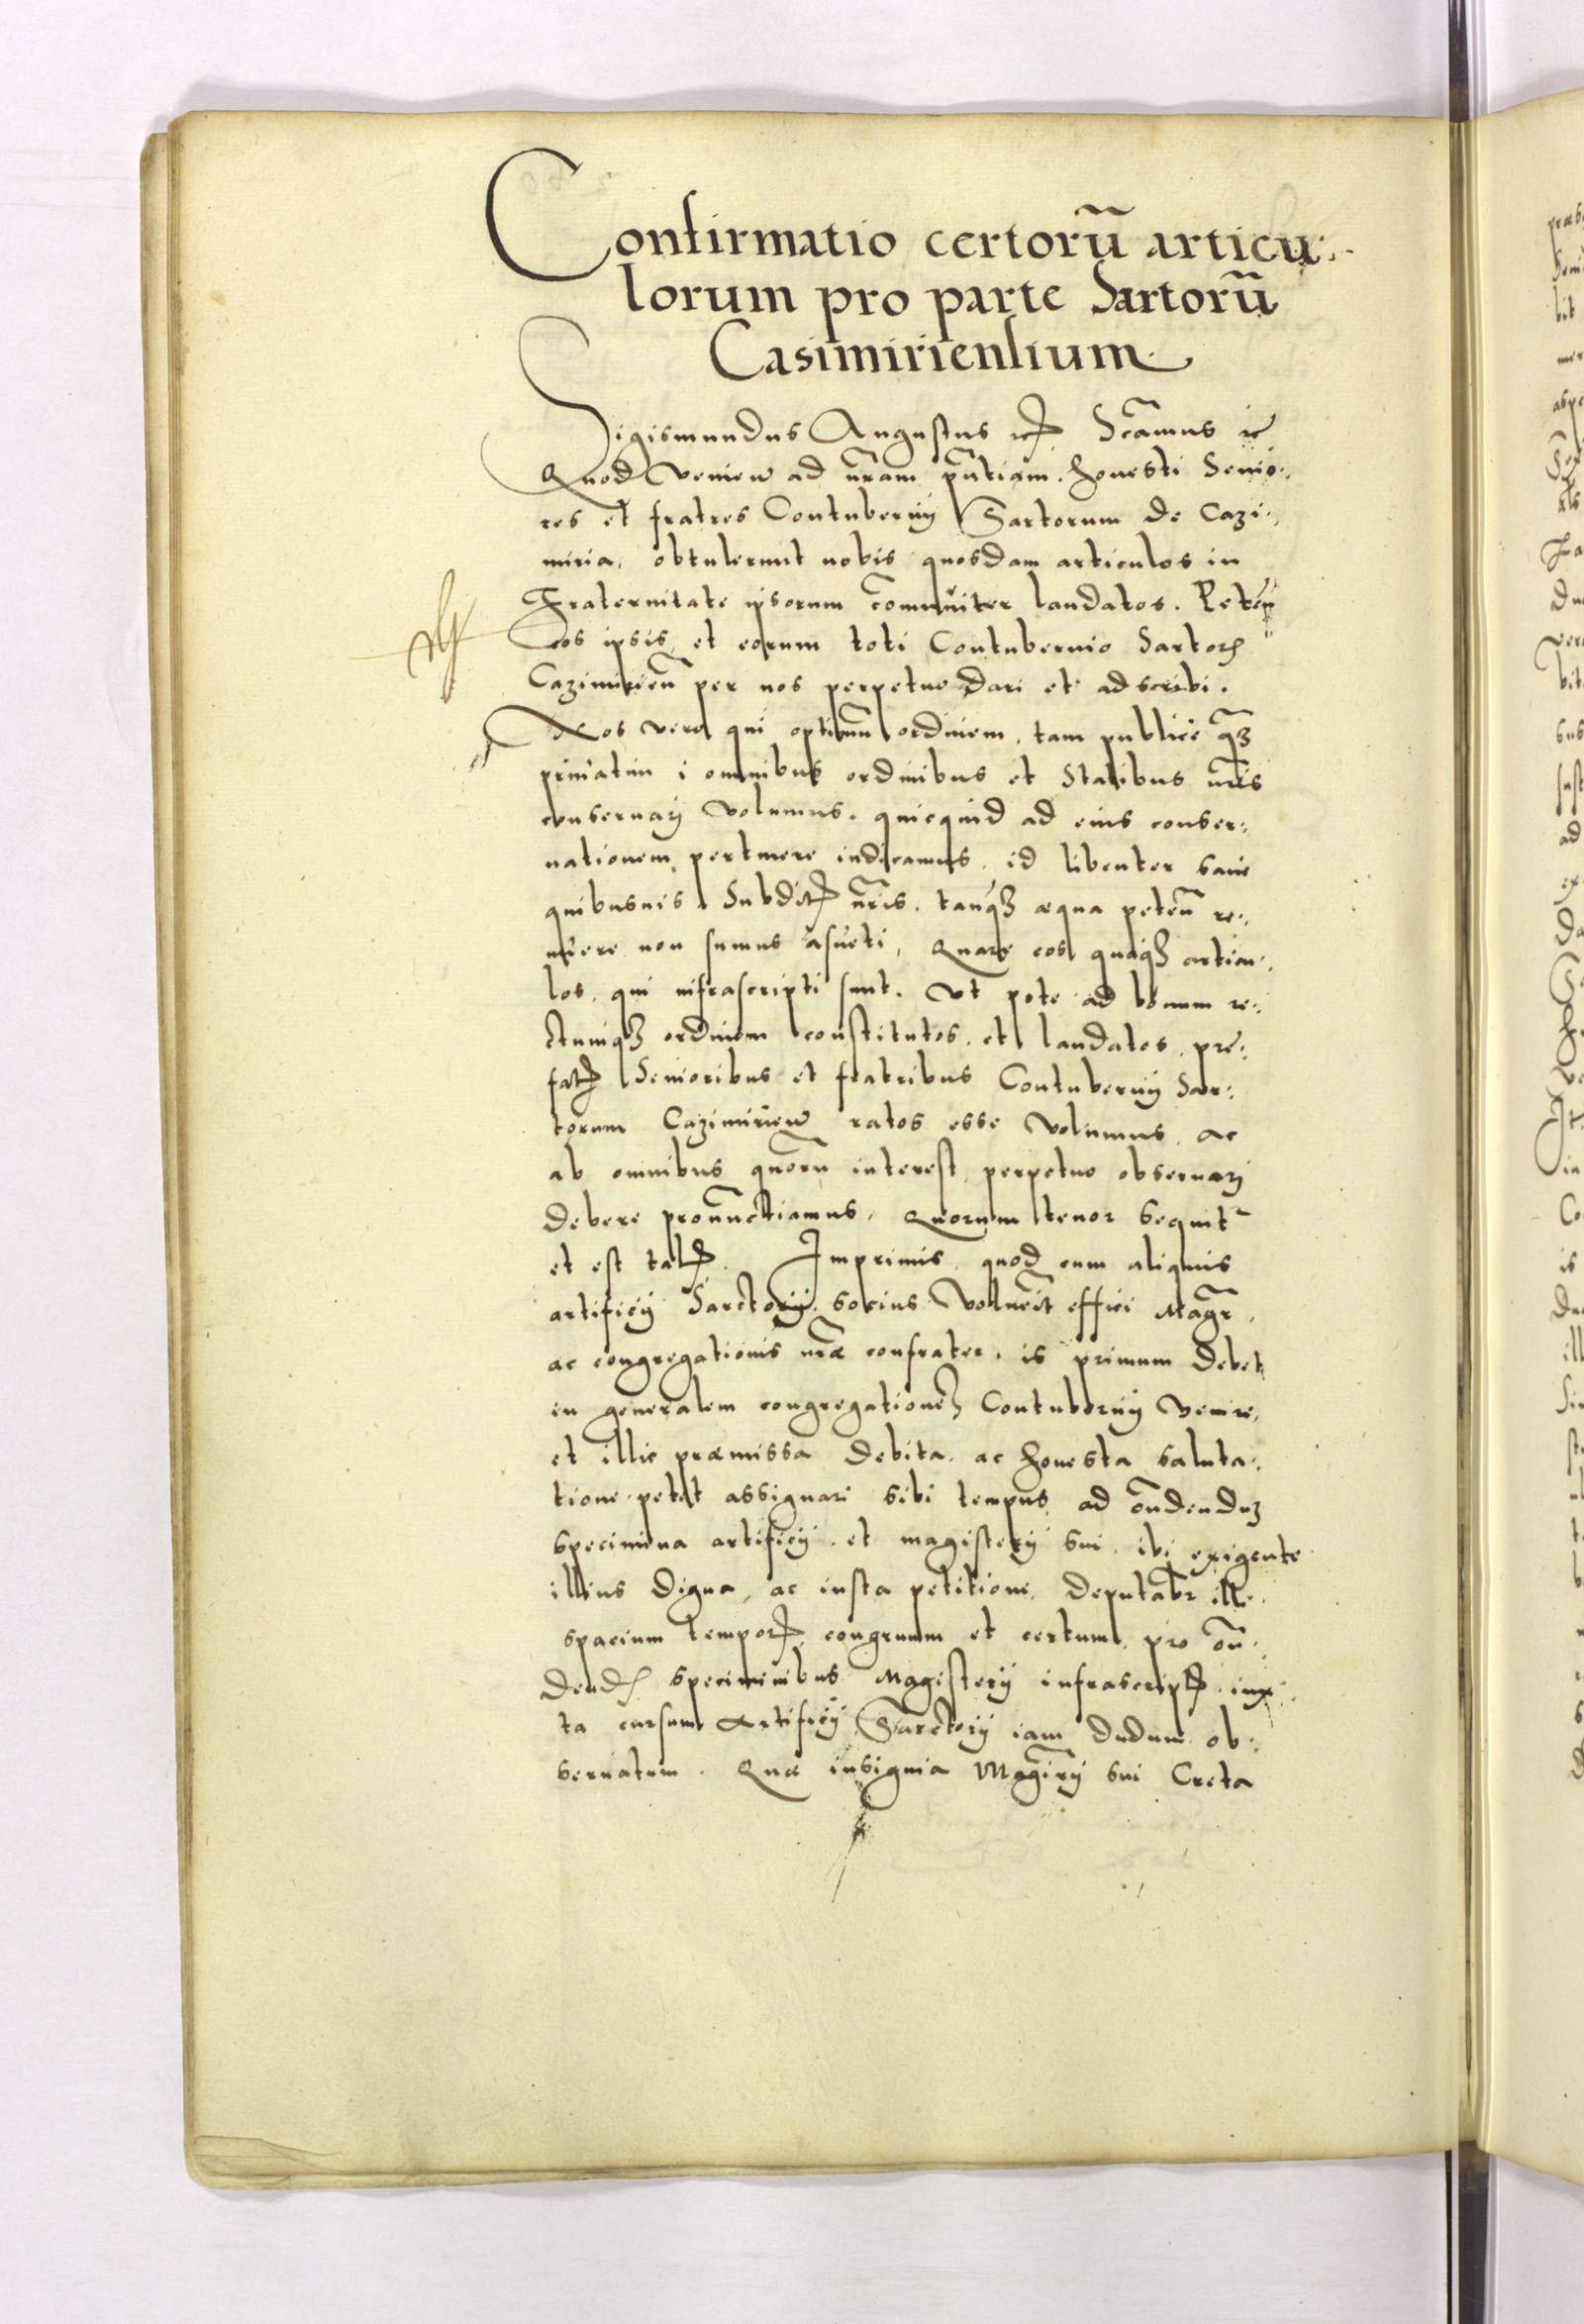 Confirmatio certorū articu:
lorum pro parte Sartorū
Casimiriensium
Sigismundus Augustus etc Scāmus ꝛc
Quod venien ad nram pntiam. honesti Senio:
res et fratres Contubernÿ Sartorum de Cazi:
miria, obtulerunt nobis quosdam articulos in
Fraternitate ipsorum comuniter laudatos. Peten
eos ipsis et eorum toti Contubernio Sartoꝝ
Cazimirien per nos perpetuo dari et adscribi.
Nos vero qui optimū ordinem, tam publice qꝫ
priuatim i omnibus ordinibus et Statibus nris
conseruarj volumus, quicquid ad eius conser:
uationem pertinere iudicamus, id libenter sane
quibusuis Subditꝭ nris, tanqꝫ æqua petēn re:
nuere non sumus asueti, Quare eos quoqꝫ articu:
los, qui infrascripti sunt, Vt pote ad bonum re:
ctumqꝫ ordinem constitutos, et laudatos, præ:
fatꝭ Senioribus et fratribus Contubernÿ Sar:
torum Cazimirien ratos esse Volumus, ac
ab omnibus quorū interest, perpetuo obseruarj
debere pronunctiamus, Quorum tenor sequit
et est talꝭ. Imprimis, quod cum aliquis
artificÿ Sarctorÿ socius Voluerit effici Magr,
ac congregationis nræ confrater, is primum debet
in generalem congregationeꝫ Contubernÿ venire,
et illic præmissa debita, ac honesta saluta:
tione petet assignari sibi tempus ad ondenduꝫ
specimina artificÿ, et magisterÿ sui, ibi exigente
illius digna, ac iusta petitione, deputabr illi
spacium temporꝭ, congruum et certum, pro on:
dendꝭ speciminibus Magisterÿ infrascriptꝭ, iux:
ta cursum Artificÿ Sarctorÿ iam dudum ob:
seruatum. Quæ insignia Magrÿ sui Creta